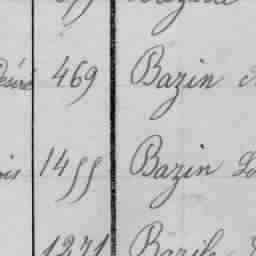 Désiré 469 Bazin
ois 1455 Bazin
1271 Bazile